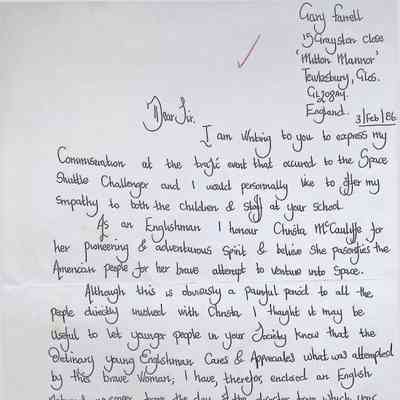 Gary Farrell
15 Grayston Close
'Mitton Mannor'
Tewkesbury, Glos.
England.
3/Feb/86
Dear Sir.
I am Writing to you to express my
Commiseration at the tragic event that occured to the Space
Shuttle Challenger and I would personally like to offer my
Sympathy to both the children & staff at your School.
As an Englishman I honour Christa McCauliffe for
her pioneering & adventurous Spirit & belive she pasonifies the
American people for her brave attempt to venture into Space.
Although this is obviously a painful period to all the
people directly involved with Christa I thought it may be
Useful to let younger people in your Society know that the
Ordinary young Englishman Cares & Appreciates what was attempted
by this brave Woman; I have, therefor, enclosed an English